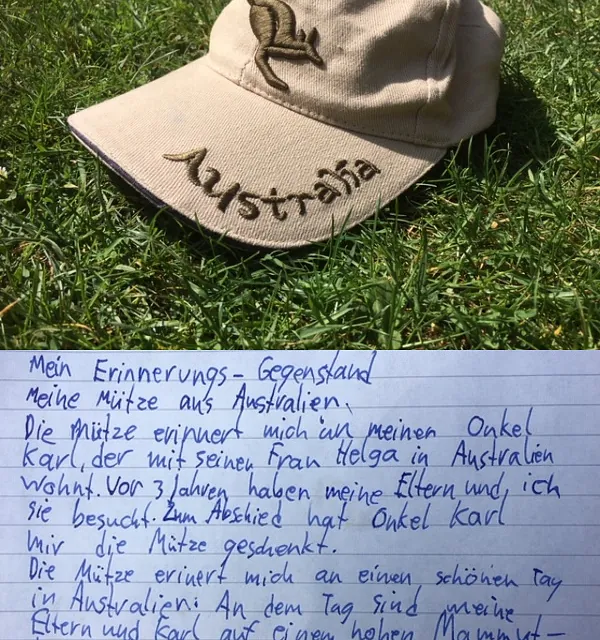 Australia
Mein Erinnerungs-Gegenstand
Meine Mütze aus Australien.
Die Mütze erinnert mich an meinen Onkel
Karl, der mit seiner Frau Helga in Australien
wohnt. Vor 3 Jahren haben meine Eltern und ich
sie besucht. Zum Abschied hat Onkel Karl
mir die Mütze geschenkt.
Die Mütze erinert mich an einen schönen Tag
in Australien: An dem Tag sind meine
Eltern und Karl auf einem hohen Mammut-